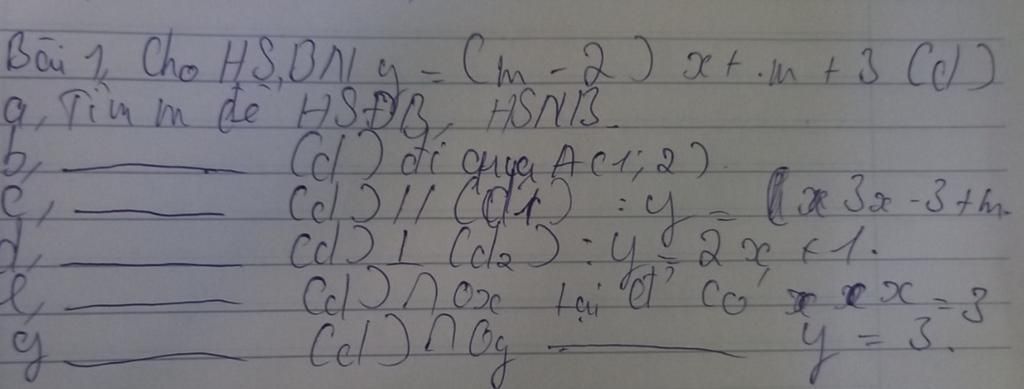 Bài 1, Cho HS, BN y = (m - 2) x + m + 3 (d)
a, Tìm m để HSĐB, HSNB.
b, ______ (d) đi qua A(1; 2).
c, ______ (d) // (d1) : y = 3x - 3 + m.
d, ______ (d) ⊥ (d2) : y = 2x + 1.
e, ______ (d) ∩ Ox tại có x = 3
g ______ (d) ∩ Oy ______ y = 3.